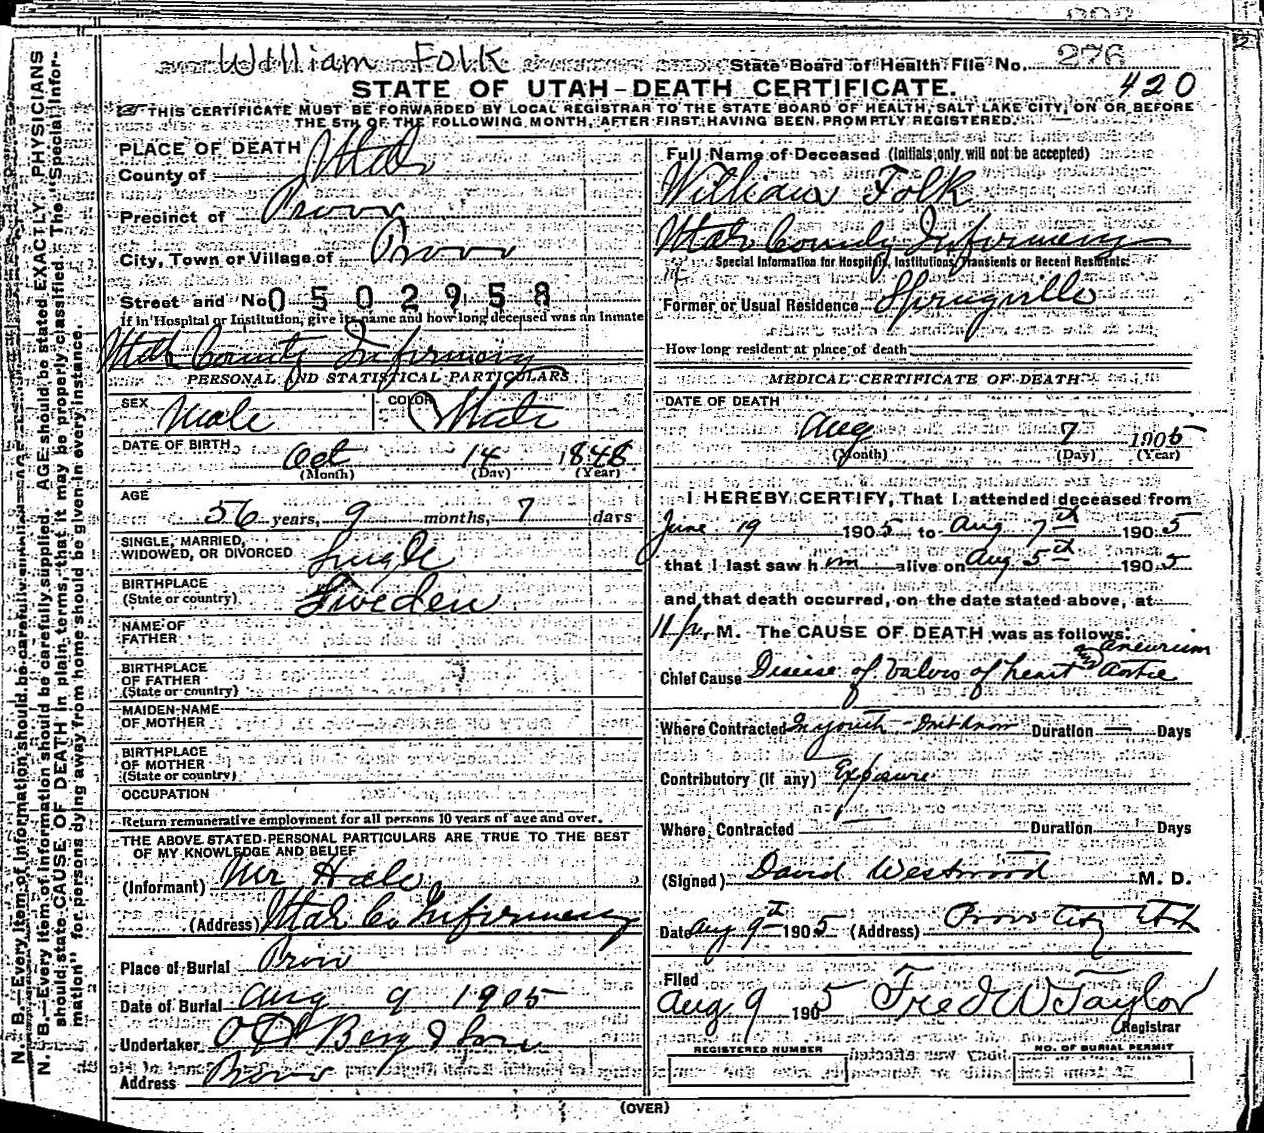 William Folk
State Board of Health File No. 276
420
STATE OF UTAH-DEATH CERTIFICATE.
THIS CERTIFICATE MUST BE FORWARDED BY LOCAL REGISTRAR TO THE STATE BOARD OF HEALTH, SALT LAKE CITY, ON OR BEFORE
THE 5TH OF THE FOLLOWING MONTH, AFTER FIRST HAVING BEEN PROMPTLY REGISTERED.
N. B.—Every item of information should be carefully supplied. AGE should be stated EXACTLY. PHYSICIANS
should state CAUSE OF DEATH in plain terms, that it may be properly classified. The "Special Infor-
mation" for persons dying away from home should be given in every instance.
PLACE OF DEATH
County of Utah
Precinct of Provo
City, Town or Village of Provo
Street and No 0502958
If in Hospital or Institution, give its name and how long deceased was an Inmate
Utah County Infirmery
PERSONAL AND STATISTICAL PARTICULARS
SEX Male COLOR White
DATE OF BIRTH Oct 14 1848
(Month) (Day) (Year)
AGE
56 years, 9 months, 7 days
SINGLE, MARRIED,
WIDOWED, OR DIVORCED Single
BIRTHPLACE
(State or country) Sweden
NAME OF
FATHER
BIRTHPLACE
OF FATHER
(State or country)
MAIDEN NAME
OF MOTHER
BIRTHPLACE
OF MOTHER
(State or country)
OCCUPATION
Return remunerative employment for all persons 10 years of age and over.
THE ABOVE STATED PERSONAL PARTICULARS ARE TRUE TO THE BEST
OF MY KNOWLEDGE AND BELIEF
(Informant) Mr Hale
(Address) Utah Co Infirmery
Place of Burial Provo
Date of Burial Aug 9 1905
Undertaker O H Berg & Son
Address Provo
Full Name of Deceased (Initials only will not be accepted)
William Folk
Utah County Infirmery
Special Information for Hospitals, Institutions, Transients or Recent Residents:
Former or Usual Residence Springville
How long resident at place of death
MEDICAL CERTIFICATE OF DEATH
DATE OF DEATH
Aug 7 1905
(Month) (Day) (Year)
I HEREBY CERTIFY, That I attended deceased from
June 19 1905 to Aug 7th 1905
that I last saw him alive on Aug 5th 1905
and that death occurred, on the date stated above, at
11 p. M. The CAUSE OF DEATH was as follows:
Chief Cause Disease of Valves of heart and aneurism Aortic
Where Contracted In youth - unknown Duration — Days
Contributory (if any) Exposure
Where Contracted Duration Days
(Signed) David Westwood M. D.
Date Aug 9th 1905 (Address) Provo City Utah
Filed
Aug 9 1905 Fred W Taylor
Registrar
REGISTERED NUMBER NO. OF BURIAL PERMIT
(OVER)